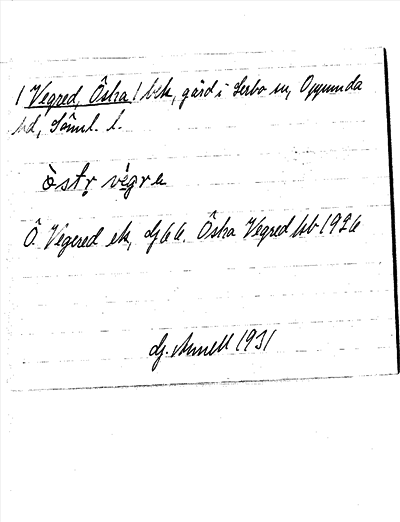 ! Vegred, Östra ! bek, gård i Lerbo sn, Oppunda
hd, Söml. l.
östr végre
Ö. Vegered ek, dj 66. Östra Vegred kb 1926
dj. Arnell 1931